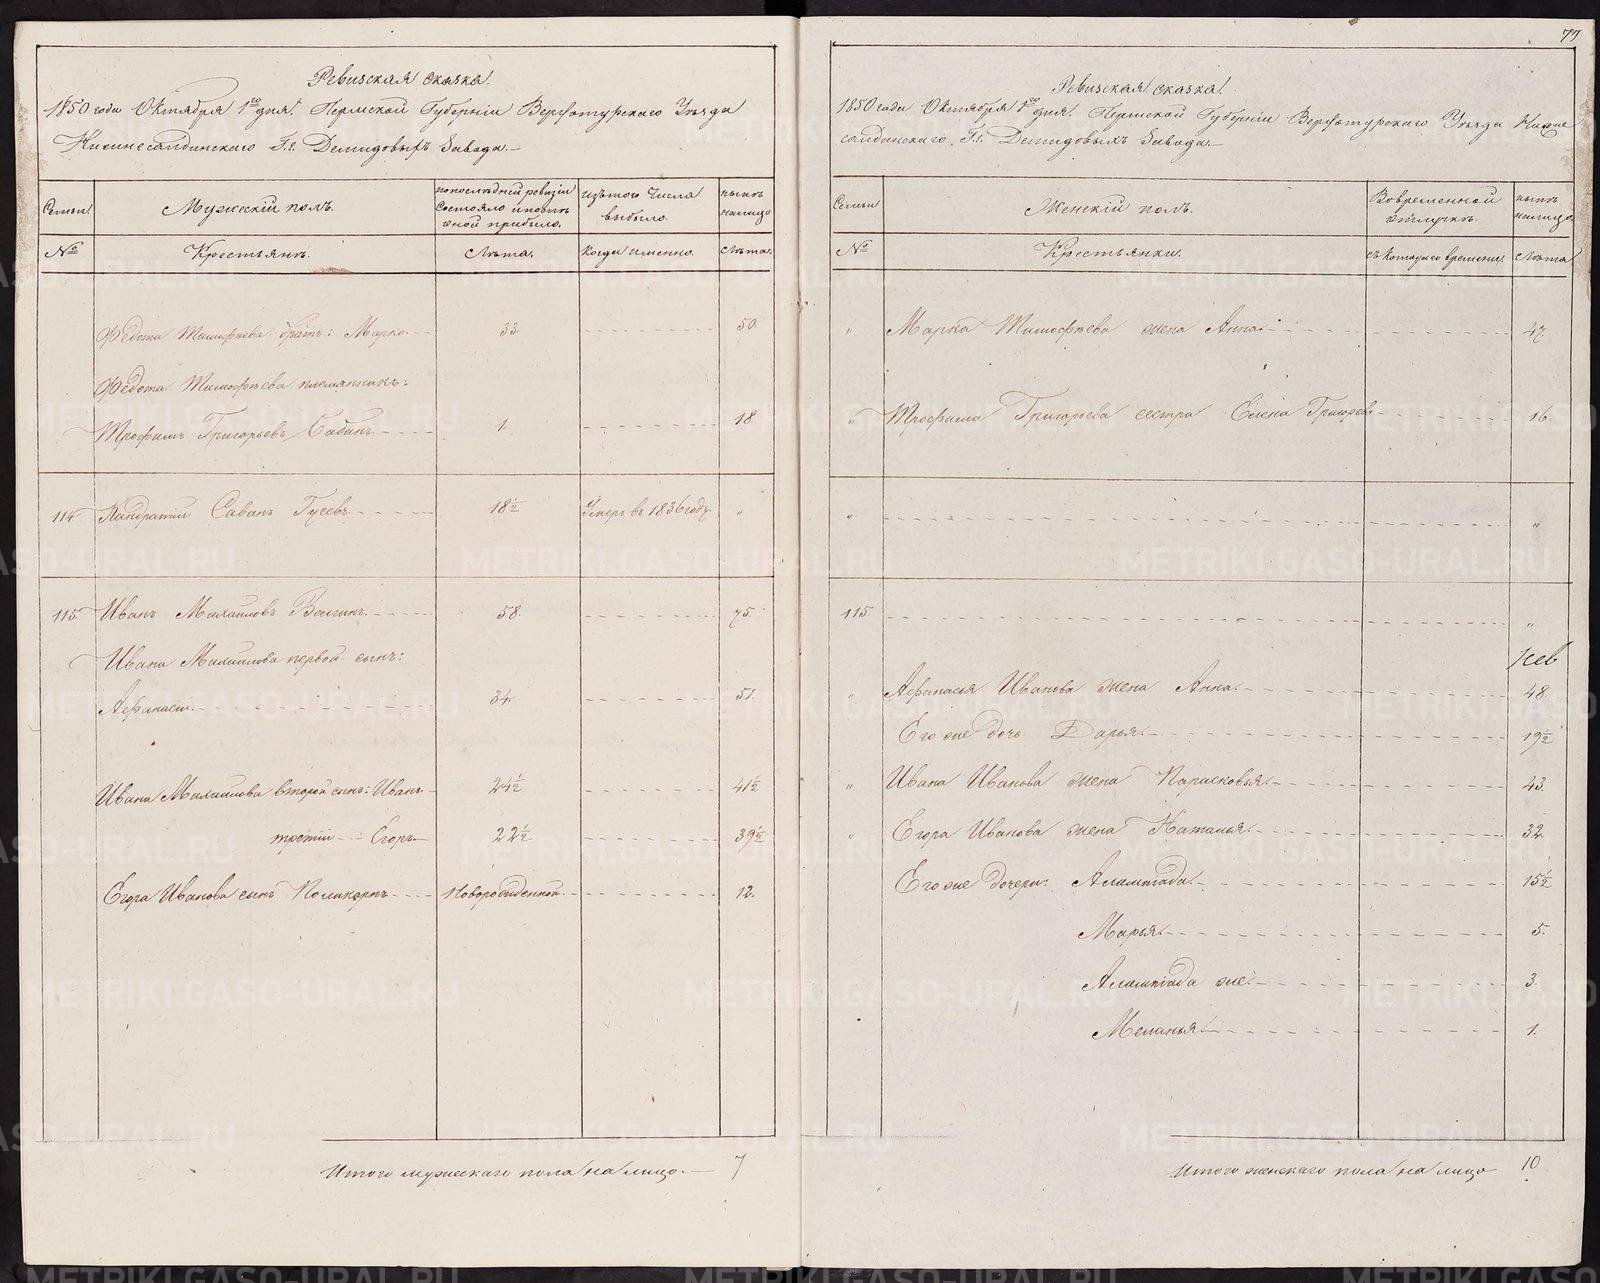 Ревизская сказка.
1850 года Октября 1го дня. Пермской Губерніи Верхотурскаго Уѣзда
Нижнесалдинскаго Г.г. Демидовыхъ Завода.
Семьи. Мужескій полъ. по послѣдней ревизіи состояло и послѣ оной прибыло. изъ того числа выбыло. нынѣ на лицо.
№ Крестьянѣ. Лѣта. когда именно. Лѣта.
Федота Тимофѣева братъ: Марко. 33. 50.
Федота Тимофѣева племянникъ:
Трофимъ Григорьевъ 1. 18
114 Кондратій Гусевъ. 18½ Умеръ въ 1836 году. "
115. Иванъ Михаиловъ 58. 75.
Ивана Михаилова первой сынъ:
Афанасій. 34. 51.
Ивана Михаилова второй сынъ: Иванъ. 24½ 41½
третій Егоръ 22½ 39½
Егора Иванова сынъ Поликарпъ Новорожденной. 12.
Итого мужескаго пола на лицо. 7
77
Ревизская сказка.
1850 года Октября 1го дня. Пермской Губерніи Верхотурскаго Уѣзда Нижне
салдинскаго Г.г. Демидовыхъ Завода.
Семьи Женскій полъ. Во временной отлучкѣ. нынѣ на лицо.
№ Крестьянки. съ котораго времени. Лѣта
" Марка Тимофѣева жена Анна. 47.
" Трофима Григорьева сестра Елена 16.
" "
115. "
" Афанасья Иванова жена Анна. 48.
Его же дочь Дарья. 19½
" Ивана Иванова жена Парасковья. 43.
" Егора Иванова жена Наталья. 32.
Его же дочери: 15½
Марья. 5.
же. 3.
Меланья. 1.
Итого женскаго пола на лицо 10.
METRIKI.GASO-URAL.RU